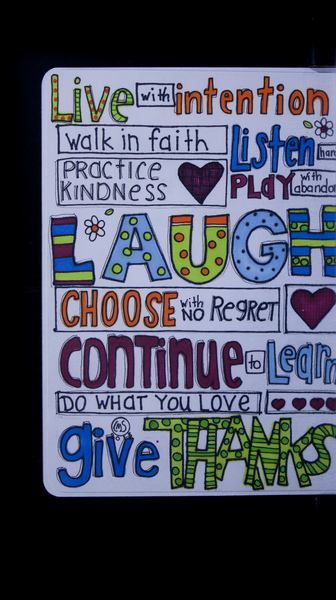 Live with intention
Walk in faith
Listen har
PRACTICE KINDNESS
PLAY with abando
LAUGH
CHOOSE with NO ReGReT
CONTINUE to Learn
DO WHAT YOU LOVE
give THANKS
MS